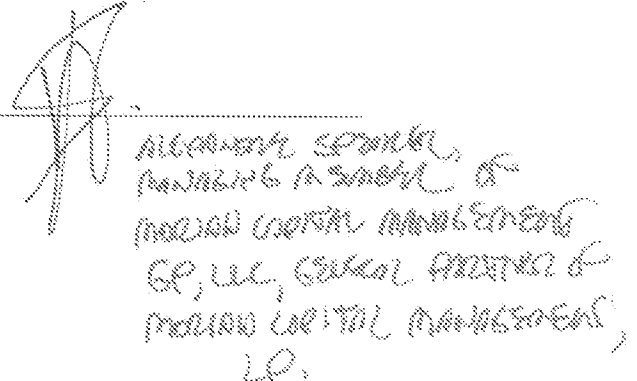 MANAGING MEMBER OF
MORIAH CAPITAL MANAGEMENT
GP, LLC, GENERAL PARTNER OF
MORIAH CAPITAL MANAGEMENT,
LP.